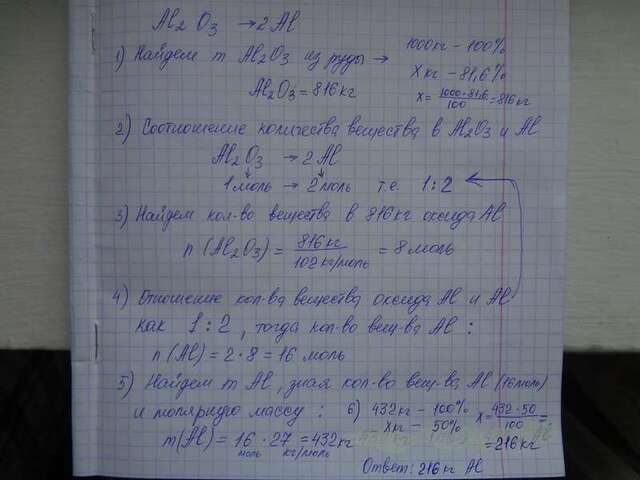 Al₂O₃ → 2Al
1) Найдем m Al₂O₃ из руды → 1000кг – 100%
X кг – 81,6%
Al₂O₃ = 816кг
x = 1000·81,6/100 = 816кг
2) Соотношение количества вещества в Al₂O₃ и Al
Al₂O₃ → 2Al
1моль → 2моль т.е. 1:2
3) Найдем кол-во вещества в 816кг оксида Al
n(Al₂O₃) = 816кг/102кг/моль = 8моль
4) Отношение кол-ва вещества оксида Al и Al
как 1:2, тогда кол-во вещ-ва Al:
n(Al) = 2·8 = 16 моль
5) Найдем m Al, зная кол-во вещ-ва Al (16моль)
и молярную массу:
m(Al) = 16 моль · 27 кг/моль = 432кг
6) 432кг – 100%
xкг – 50%
x = 432·50/100 =
= 216кг
Ответ: 216кг Al